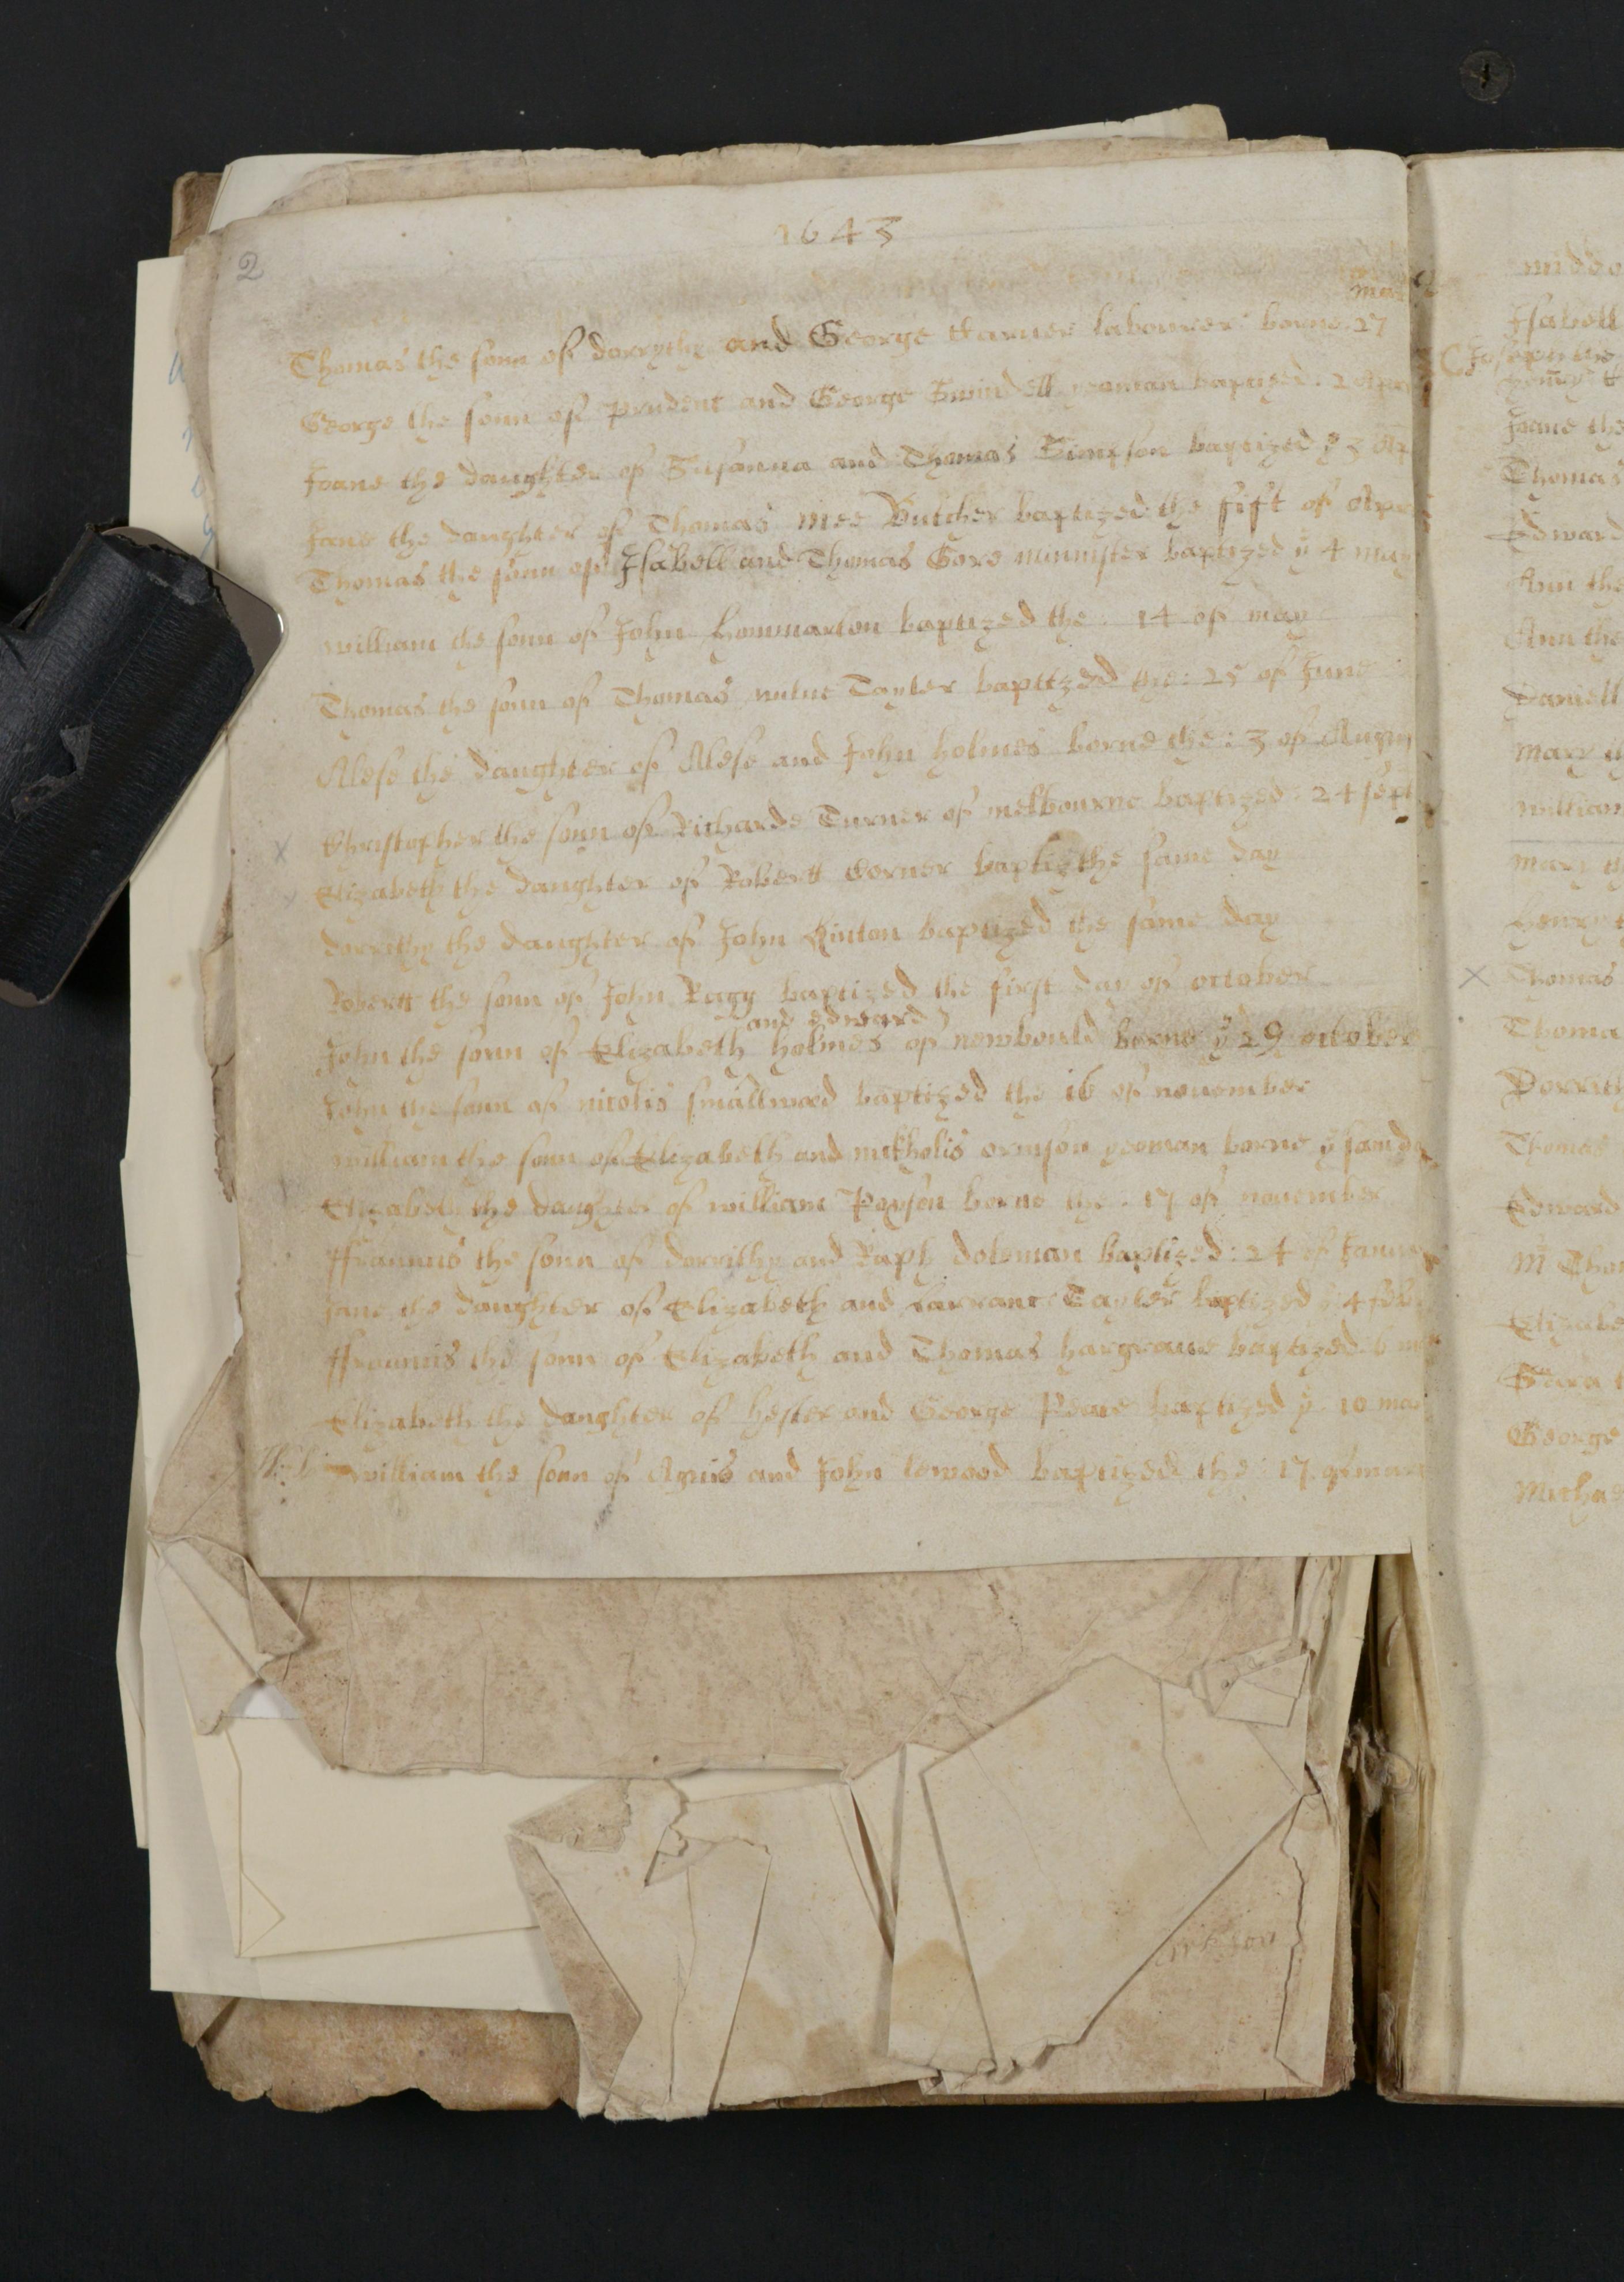 1643
2
mar
Thomas the sonn of dorrythy and George ffarmer labourer borne 27
George the sonn of Prudent and George Swindell yeoman baptized 2 Apr
Joane the daughter of Susanna and Thomas Simpson baptized ye 3 Ap
Jane the daughter of Thomas mee Butcher baptized the fift of Apr
Thomas the sonn of Isabell and Thomas Gore minnister baptized ye 4 may
william the sonn of John hommarton baptized the 14 of may
Thomas the sonn of Thomas Tayler baptized the : 25 of June
Alese the daughter of Alese and John holmes borne the : 3 of Augus
Christopher the sonn of Richarde Turner of melbourne baptized : 24 sept
Elizabeth the daughter of Robertt Corner baptiz the same day
dorrithy the daughter of John Hinton baptized the same day
Robertt the sonn of John Ragg baptized the first day of october
and edward
John the sonn of Elizabeth holmes of newbould borne ye 29 october
John the sonn of nicolis smallwood baptized the 16 of nouember
william the sonn of Elizabeth and nickholis ormson yeoman borne ye sam da
Elizabeth the daughter of william Poyson borne the 17 of nouember
ffrannsis the sonn of dorrithy and Raph doleman baptized : 24 of Janua
Jane the daughter of Elizabeth and larrance Tayler baptized ye 4 feb
ffrannsis the sonn of Elizabeth and Thomas hargraue baptized 6
Elizabeth the daughter of hester and George baptized ye 10 mar
william the sonn of Agnis and John lewood baptized the 17 of mar
midd
Isabell
Joseph the
Joane the
Thomas
Edward
Ann the
Ann the
Daniell
Mary
william
Mary th
henry t
Thomas
Thoma
Dorrith
Thomas
Edward
M Thom
Elizabe
Sara t
George
Micha